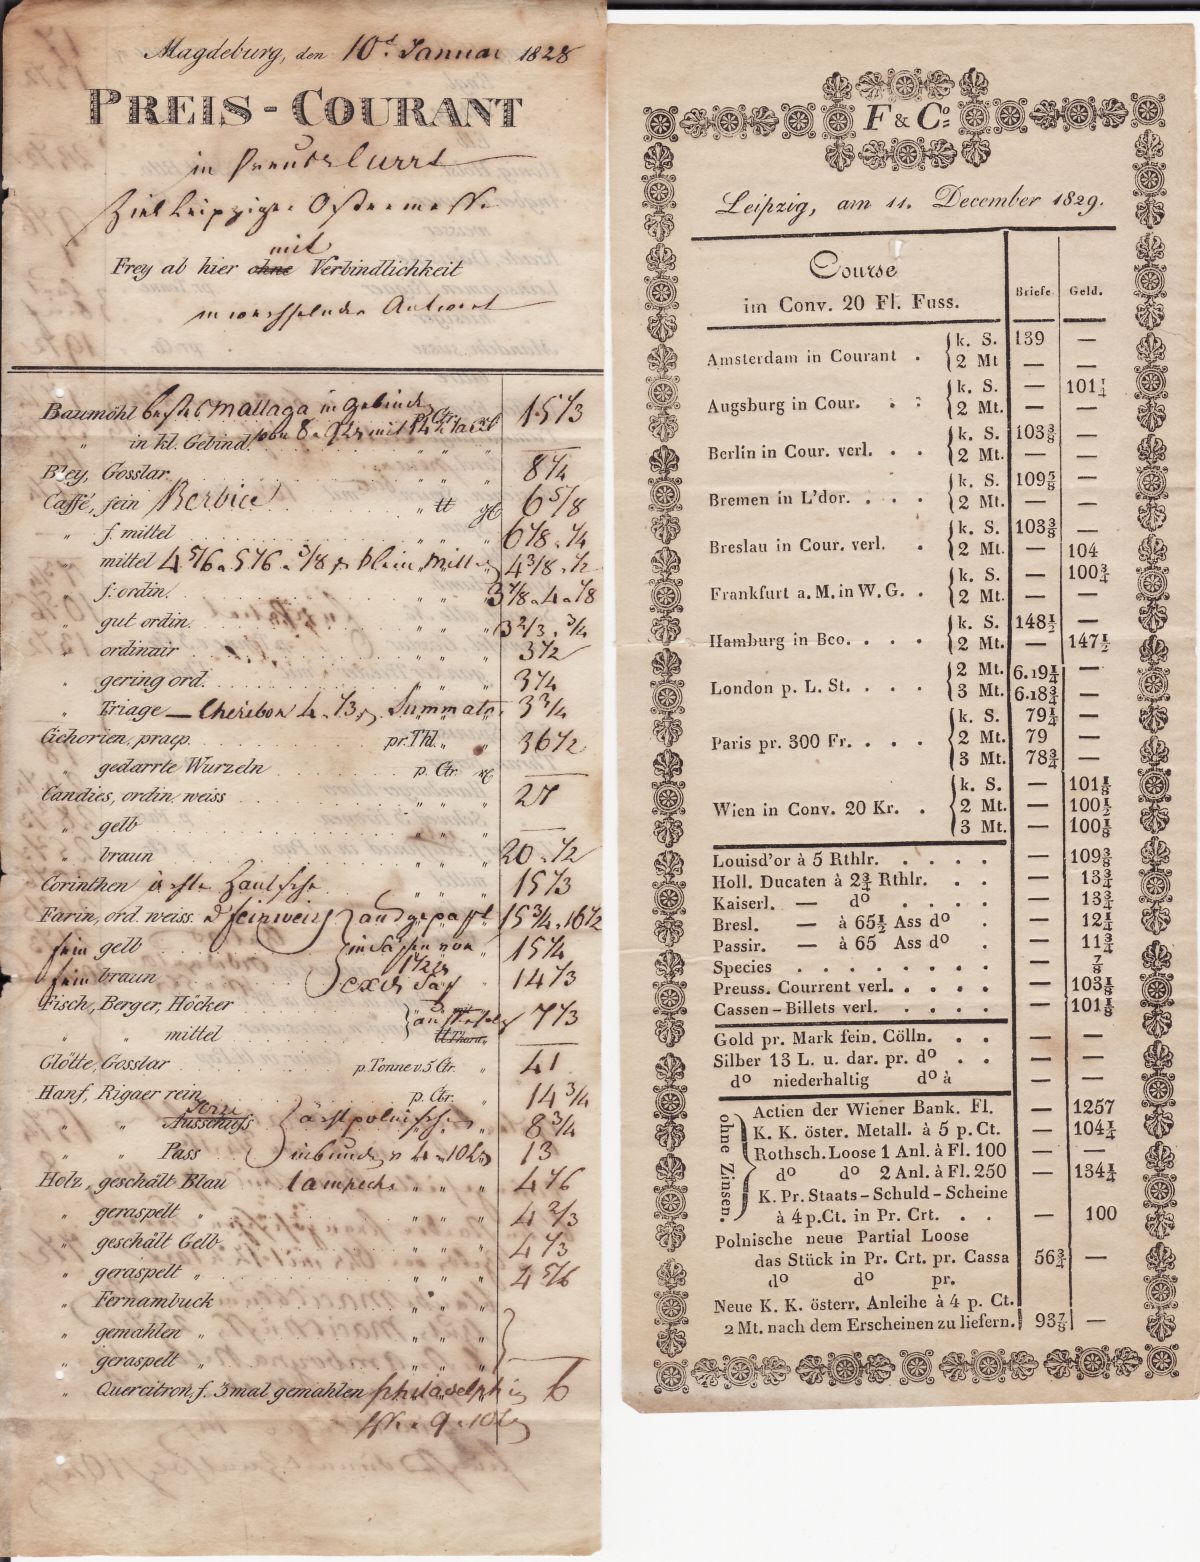 Magdeburg, den 10.d Januar 1828
PREIS - COURANT
in Preuss Currt
Ziel Leipziger Ostermesse
mit
Frey ab hier ohne Verbindlichkeit
Antwort
Baumöhl bestes Mallaga in Gebind p. Ctr. 15 1/3
" in kl. Gebind.
Bley, Gosslar 8 1/4
Caffé, fein Berbice " tt 6 5/8
" f. mittel 6 1/8 . 1/4
" mittel 4 3/8 . 1/2
f. ordin. 3 7/8 . 4 . 1/8
" gut ordin. 3 2/3 . 3/4
" ordinair 3 1/2
" gering ord. 3 1/4
" Triage — Cheribon Summatr. 3 3/4
Cichorien, praep. pr. Thl. 36 1/2
" gedarrte Wurzeln p. Ctr. —
Candies, ordin. weiss 27
" gelb —
" braun 20 . 1/2
Corinthen 15 1/3
Farin, ord. weiss. 15 3/4 . 16 1/2
fein gelb 15 1/4
fein braun 14 1/3
Fisch, Berger, Höcker 7 1/3
" " mittel
Glötte, Gosslar p. Tonne v. 5 Ctr. 41
Hanf, Rigaer rein p. Ctr. 14 3/4
" " Ausschuss 8 3/4
" " Pass 13
Holz, geschält Blau 4 1/6
" geraspelt " 4 2/3
" geschält Gelb 4 1/3
" geraspelt " 4 5/6
" Fernambuck
" gemahlen "
" geraspelt "
" Quercitron, f. 3 mal gemahlen philadelphia 6
F & Co
Leipzig, am 11. December 1829.
Course
im Conv. 20 Fl. Fuss. Briefe. Geld.
Amsterdam in Courant . k. S. 139 —
2 Mt — —
Augsburg in Cour. . . k. S. — 101 1/4
2 Mt. — —
Berlin in Cour. verl. . . k. S. 103 3/8 —
2 Mt. — —
Bremen in L'dor. . . . k. S. 109 5/8 —
2 Mt. — —
Breslau in Cour. verl. . k. S. 103 3/8 —
2 Mt. — 104
Frankfurt a. M. in W. G. . k. S. — 100 3/4
2 Mt. — —
Hamburg in Bco. . . . k. S. 148 1/2 —
2 Mt. — 147 1/2
London p. L. St. . . . 2 Mt. 6.19 1/4 —
3 Mt. 6.18 3/4 —
Paris pr. 300 Fr. . . . k. S. 79 1/4 —
2 Mt. 79 —
3 Mt. 78 3/4 —
Wien in Conv. 20 Kr. . k. S. — 101 1/8
2 Mt. — 100 1/2
3 Mt. — 100 1/8
Louisd'or à 5 Rthlr. . . . . — 109 3/8
Holl. Ducaten à 2 3/4 Rthlr. . . — 13 3/4
Kaiserl. — do . . . . . — 13 3/4
Bresl. — à 65 1/2 Ass do . — 12 1/4
Passir. — à 65 Ass do . — 11 3/4
Species . . . . . . . . — 7/8
Preuss. Courrent verl. . . . . — 103 1/8
Cassen - Billets verl. . . . . — 101 1/8
Gold pr. Mark fein. Cölln. . . — —
Silber 13 L. u. dar. pr. do . . — —
do niederhaltig do à — —
ohne Zinsen.
Actien der Wiener Bank. Fl. — 1257
K. K. öster. Metall. à 5 p. Ct. — 104 1/4
Rothsch. Loose 1 Anl. à Fl. 100 — —
do do 2 Anl. à Fl. 250 — 134 1/4
K. Pr. Staats - Schuld - Scheine
à 4 p. Ct. in Pr. Crt. . . — 100
Polnische neue Partial Loose
das Stück in Pr. Crt. pr. Cassa 56 3/4 —
do do pr.
Neue K. K. österr. Anleihe à 4 p. Ct.
2 Mt. nach dem Erscheinen zu liefern. 93 7/8 —